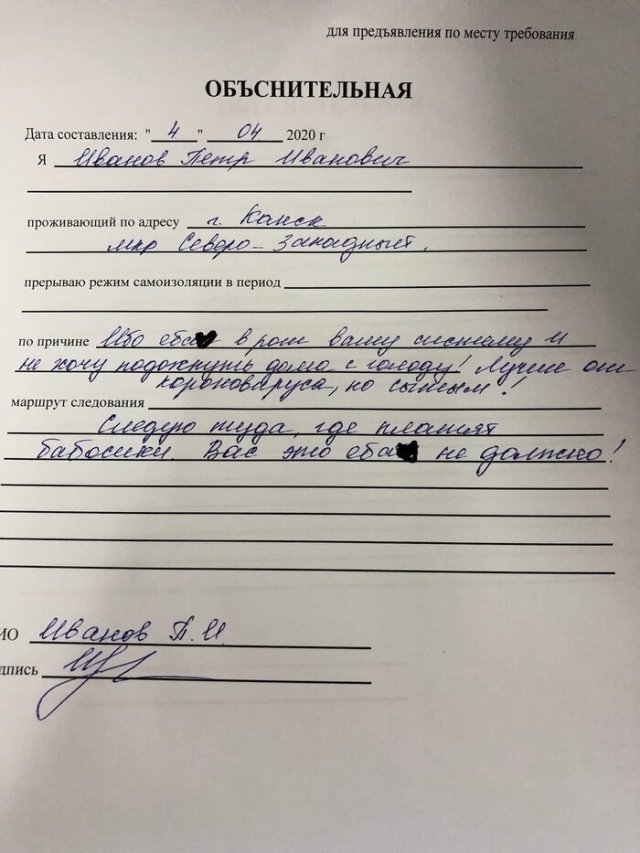 для предъявления по месту требования
ОБЪСНИТЕЛЬНАЯ
Дата составления: " 4 " 04 2020 г
Я Иванов Петр Иванович
проживающий по адресу г. Канск
мкр Северо-Западный.
прерываю режим самоизоляции в период
по причине Ибо еба в рот вашу систему и
не хочу подохнуть дома с голоду! Лучше от
короновируса, но сытым!
маршрут следования
Следую туда, где платят
бабосики. Вас это еба не должно!
ИО Иванов П.И
дпись